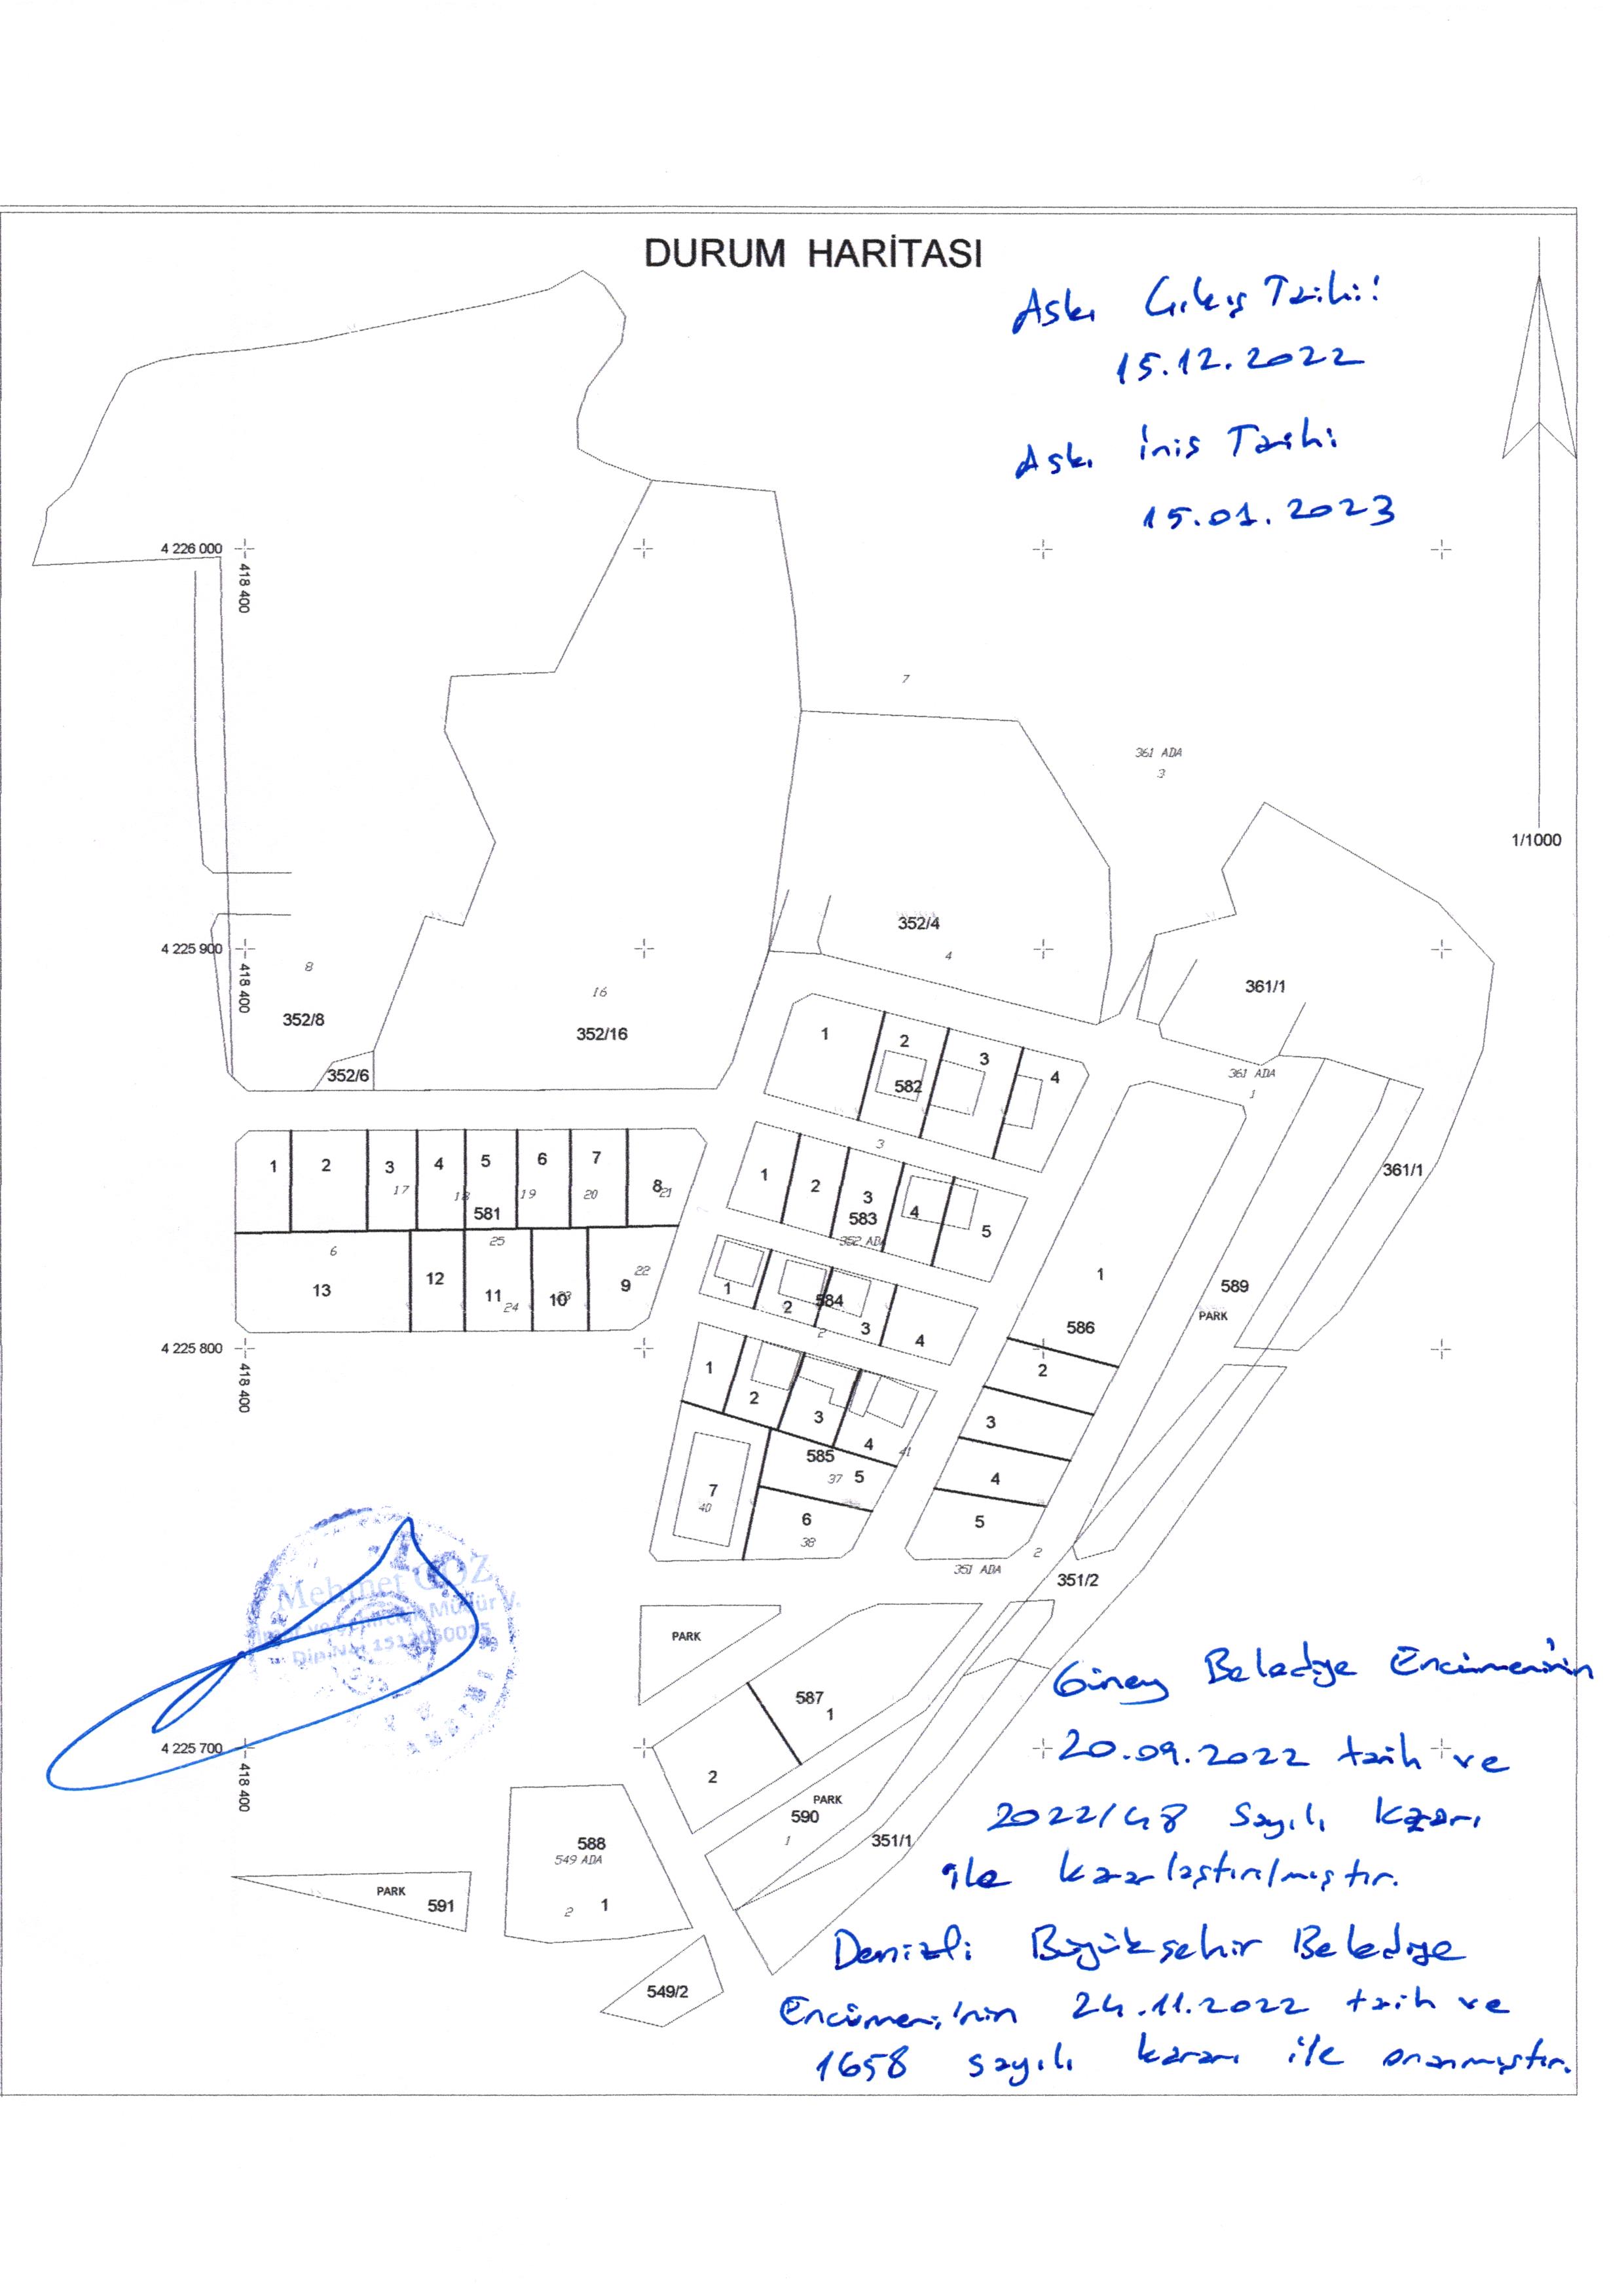 DURUM HARİTASI
Askı Çıkış Tarihi:
15.12.2022
Askı İniş Tarihi
15.01.2023
4 226 000
418 400
7
361 ADA
3
1/1000
352/4
4
4 225 900
418 400
8
352/8
16
352/16
352/6
361/1
361 ADA
1
361/1
1 2 3 4
582
3
1 2 3 4 5 6 7 8
17 18 19 20 21
581
6 25 22
13 12 11 10 9
24 23
1 2 3 4 5
583
352 ADA
1 2 3 4
584
2
1
586
2
3
4
5
589
PARK
4 225 800
418 400
1 2 3 4
41
585
37 5
7
40
6
38
351 ADA
2
351/2
Mehmet GÖZ
PARK
587
1
2
Güney Belediye Encümeninin
4 225 700
418 400
20.09.2022 tarih ve
PARK
590
1
351/1
2022/48 Sayılı Kararı
ile kararlaştırılmıştır.
588
549 ADA
2 1
PARK
591
549/2
Denizli Büyükşehir Belediye
Encümeni'nin 24.11.2022 tarih ve
1658 sayılı kararı ile onanmıştır.